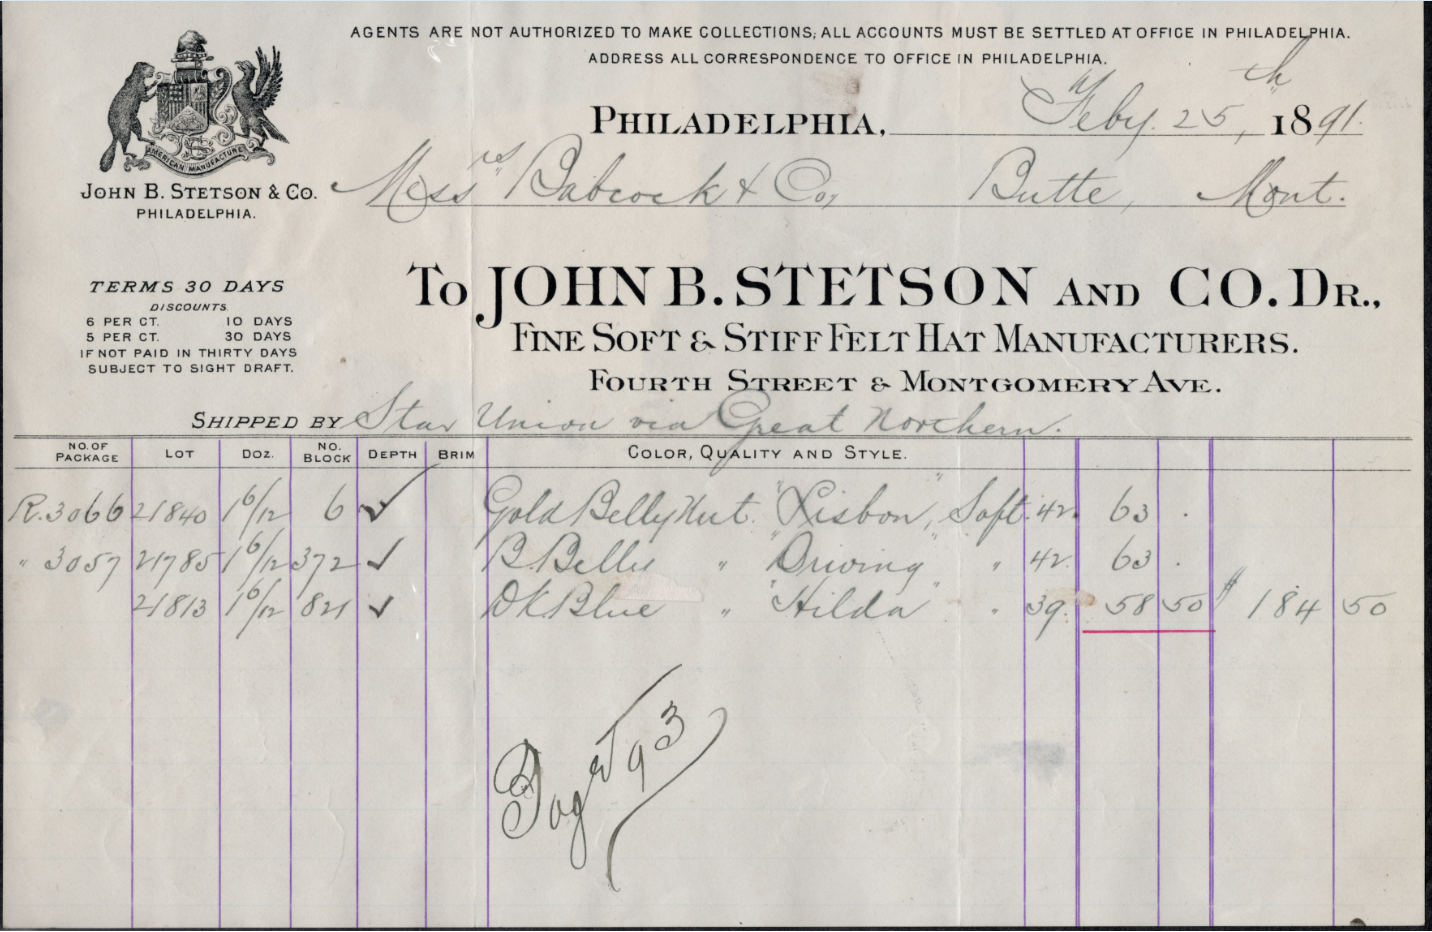 AGENTS ARE NOT AUTHORIZED TO MAKE COLLECTIONS; ALL ACCOUNTS MUST BE SETTLED AT OFFICE IN PHILADELPHIA.
ADDRESS ALL CORRESPONDENCE TO OFFICE IN PHILADELPHIA.
AMERICAN MANUFACTURE
JOHN B. STETSON & CO.
PHILADELPHIA.
PHILADELPHIA, Feby. 25th, 1891.
Messrs Babcock & Co, Butte, Mont.
TERMS 30 DAYS
DISCOUNTS.
6 PER CT. 10 DAYS
5 PER CT. 30 DAYS
IF NOT PAID IN THIRTY DAYS
SUBJECT TO SIGHT DRAFT.
TO JOHN B. STETSON AND CO. DR.,
FINE SOFT & STIFF FELT HAT MANUFACTURERS.
FOURTH STREET & MONTGOMERY AVE.
SHIPPED BY Star Union via Great Northern.
NO. OF PACKAGE LOT DOZ. NO. BLOCK DEPTH BRIM COLOR, QUALITY AND STYLE.
R. 3066 21840 1 6/12 6 ✓ Gold Belly Nut. "Lisbon" Soft. 42. 63 .
" 3057 21785 1 6/12 372 ✓ B. Belly " "Driving" " 42. 63 .
21813 1 6/12 821 ✓ DK Blue " "Hilda" " 39. 58 50 $ 184 50
93